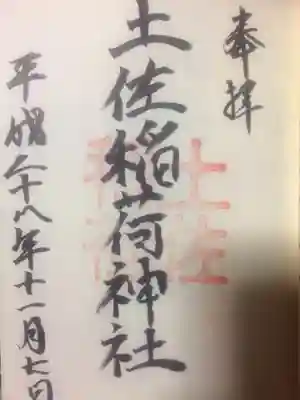 奉拝
土佐稲荷神社
土佐
平成二十八年十一月七日